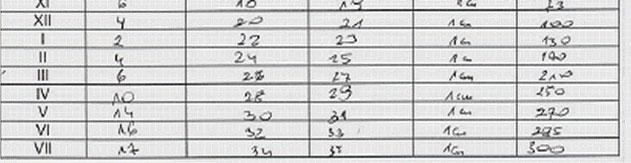 XI 6 18 19 1cm 73
XII 4 20 21 1cm 100
I 2 22 23 1cm 130
II 4 24 25 1cm 190
III 6 26 27 1cm 210
IV 10 28 29 1cm 250
V 14 30 31 1cm 270
VI 16 32 33 1cm 285
VII 17 34 35 1cm 300